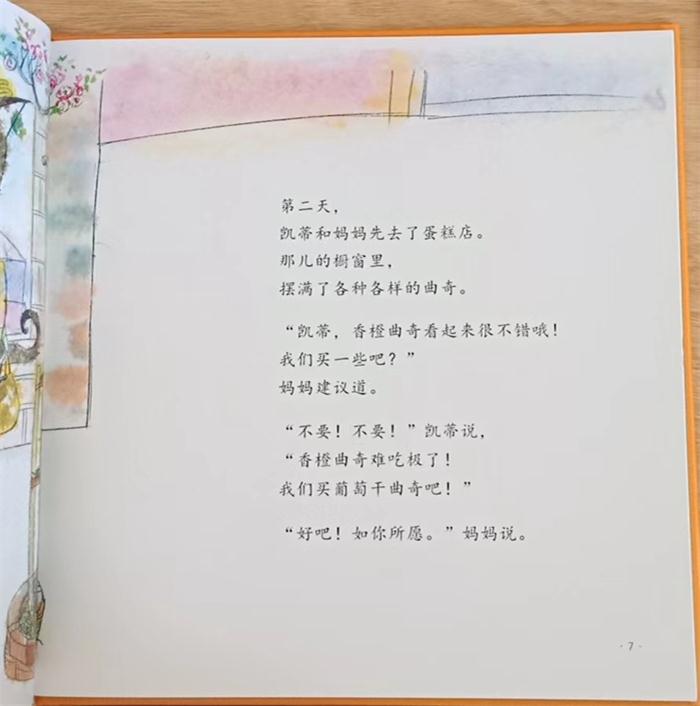 第二天，
凯蒂和妈妈先去了蛋糕店。
那儿的橱窗里，
摆满了各种各样的曲奇。
“凯蒂，香橙曲奇看起来很不错哦！
我们买一些吧？”
妈妈建议道。
“不要！不要！”凯蒂说，
“香橙曲奇难吃极了！
我们买葡萄干曲奇吧！”
“好吧！如你所愿。”妈妈说。
·7·